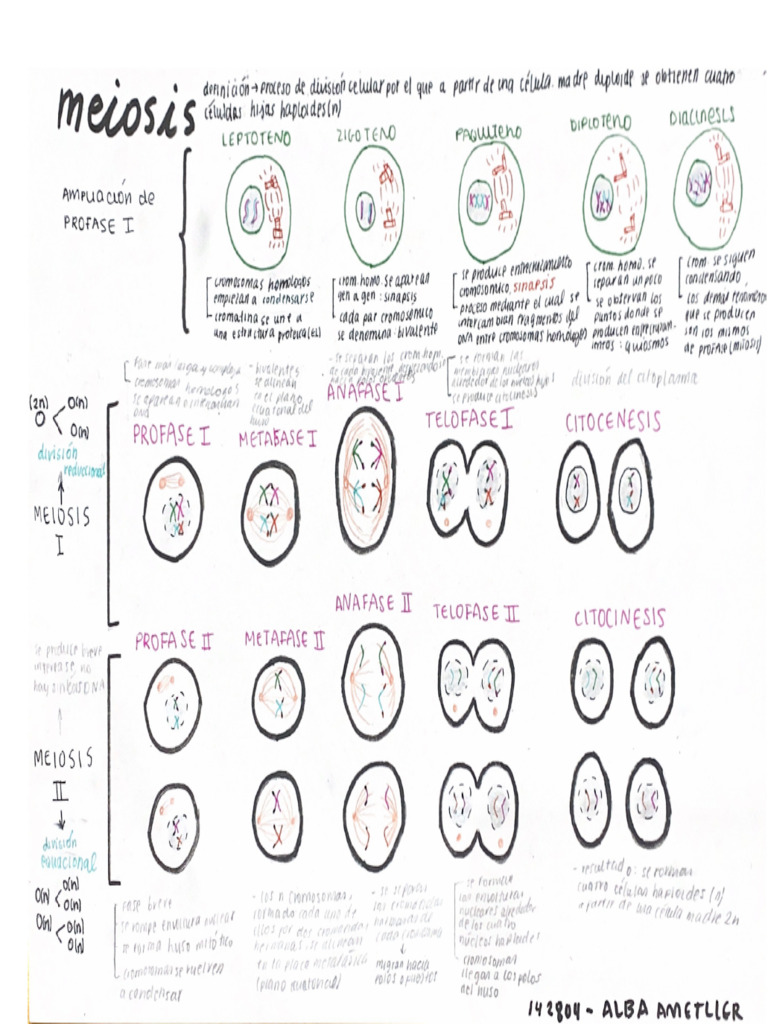 meiosis
definición → proceso de división celular por el que a partir de una célula madre diploide se obtienen cuatro
células hijas haploides (n)
AMPLIACIÓN DE
PROFASE I
LEPTOTENO
cromosomas homologos
empiezan a condensarse
cromatina se une a
una estructura proteica (es)
ZIGOTENO
crom. homo. se aparean
gen a gen: sinapsis
cada par cromosómico
se denomina: bivalente
PAQUITENO
se produce entrecruzamiento
cromosomico, sinapsis
proceso mediante el cual se
intercambian fragmentos del
DNA entre cromosomas homologos
DIPLOTENO
crom. homo. se
separan un poco
se observan los
puntos donde se
producen
: quiasmos
DIACINESIS
crom. se siguen
condensando
los demás fenómenos
que se producen
son los mismos
de profase (mitosis)
(2n)
O
O(n)
O(n)
división
reduccional
MEIOSIS
I
fase mas larga y compleja
cromosomas homologos
se aparean e intercambian
DNA
PROFASE I
- bivalentes
se alinean
en el plano
ecuatorial del
huso
METAFASE I
- se separan los crom. hom.
de cada bivalente
ANAFASE I
se forman las
membranas nucleares
alrededor de los nuevos
se produce citocinesis
TELOFASE I
división del citoplasma
CITOCENESIS
se produce breve
interfase, no
hay síntesis DNA
MEIOSIS
II
división
ecuacional
O(n)
O(n)
O(n)
O(n)
O(n)
O(n)
PROFASE II
METAFASE II
ANAFASE II
TELOFASE II
CITOCINESIS
fase breve
se rompe envoltura nuclear
se forma huso mitótico
cromosomas se vuelven
a condensar
- los n cromosomas,
formada cada uno de
ellos por dos cromatidas
hermanas, se alinean
en la placa metafásica
(plano ecuatorial)
- se separan
las cromatidas
hermanas de
cada cromosoma
migran hacia
polos opuestos
- se forman
las envolturas
nucleares alrededor
de los cuatro
núcleos haploides
cromosomas
llegan a los polos
del huso
- resultado: se forman
cuatro células haploides (n)
a partir de una célula madre 2n
142804 - ALBA AMETLLER